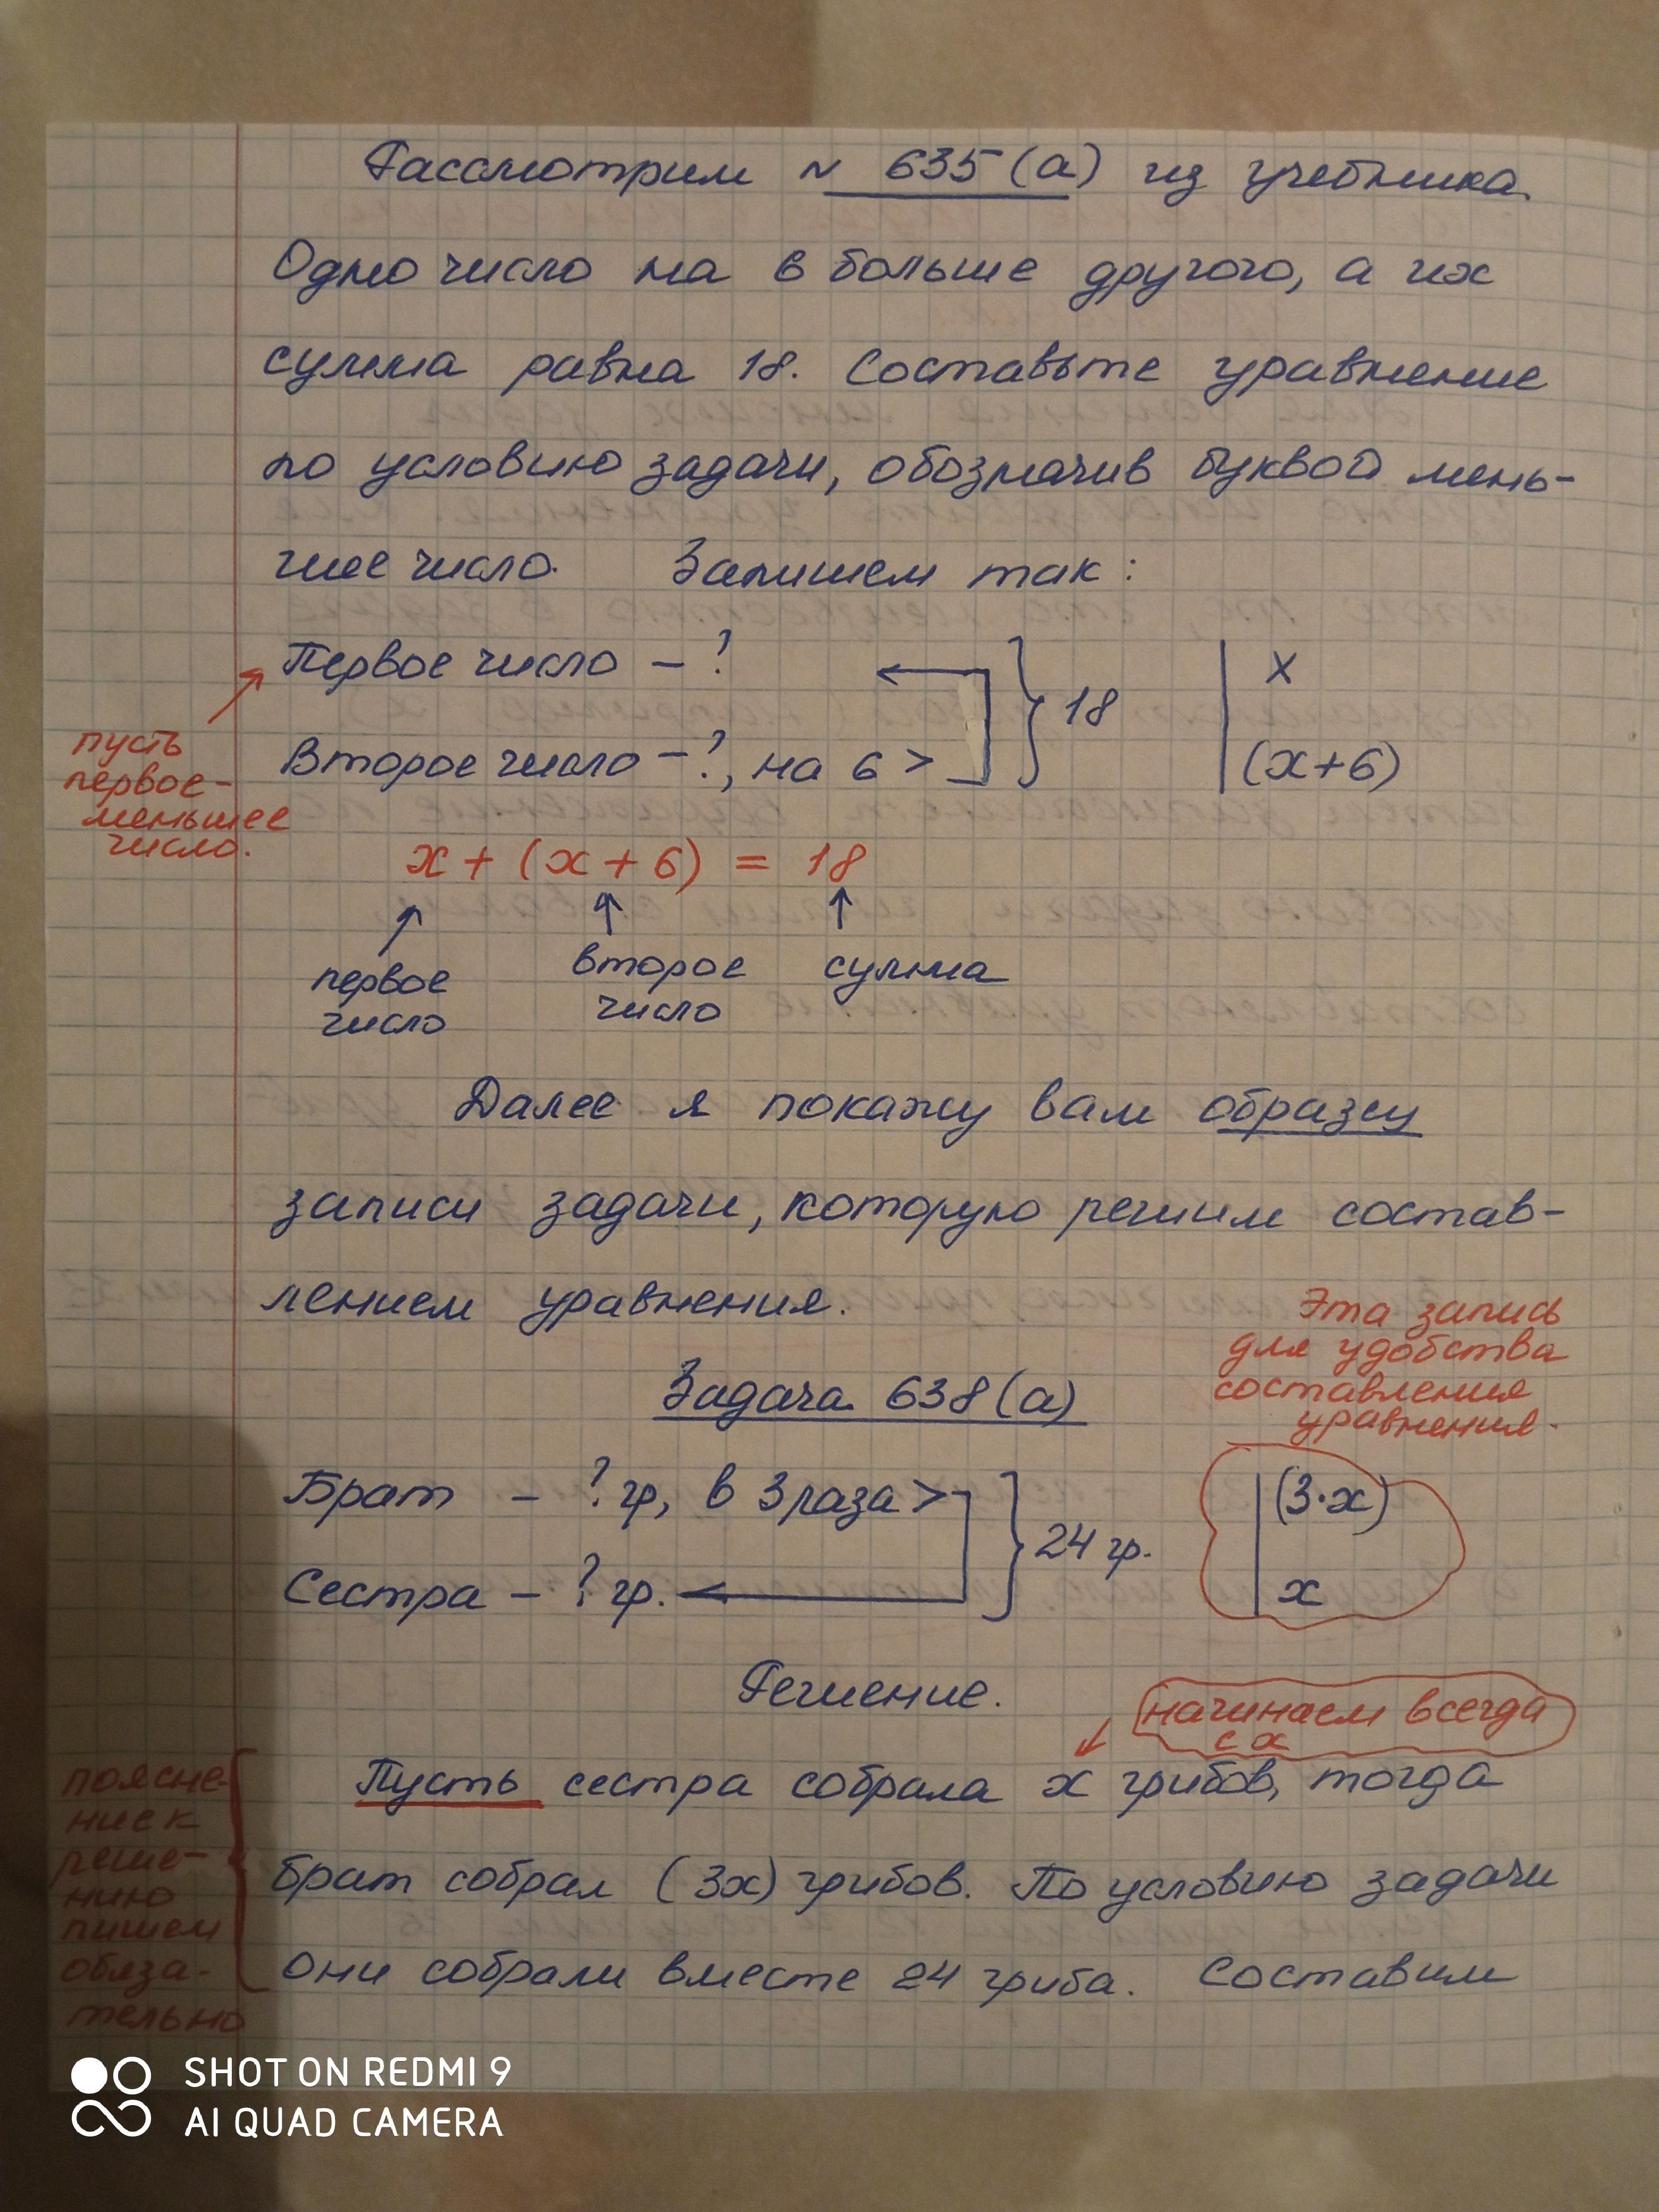 Рассмотрим № 635 (а) из учебника.
Одно число на 6 больше другого, а их
сумма равна 18. Составьте уравнение
по условию задачи, обозначив буквой мень-
шее число. Запишем так:
Первое число – ?
Второе число – ?, на 6 >
} 18
x
(x+6)
пусть
первое-
меньшее
число.
x + (x + 6) = 18
первое
число
второе
число
сумма
Далее я покажу вам образец
записи задачи, которую решим состав-
лением уравнения.
Эта запись
для удобства
составления
уравнения.
Задача 638 (а)
Брат – ? гр, в 3 раза >
Сестра – ? гр.
} 24 гр.
(3·x)
x
Решение.
начинаем всегда
с x
Пусть сестра собрала x грибов, тогда
брат собрал (3x) грибов. По условию задачи
они собрали вместе 24 гриба. Составим
поясне-
ние к
реше-
нию
пишем
обяза-
тельно
SHOT ON REDMI 9
AI QUAD CAMERA